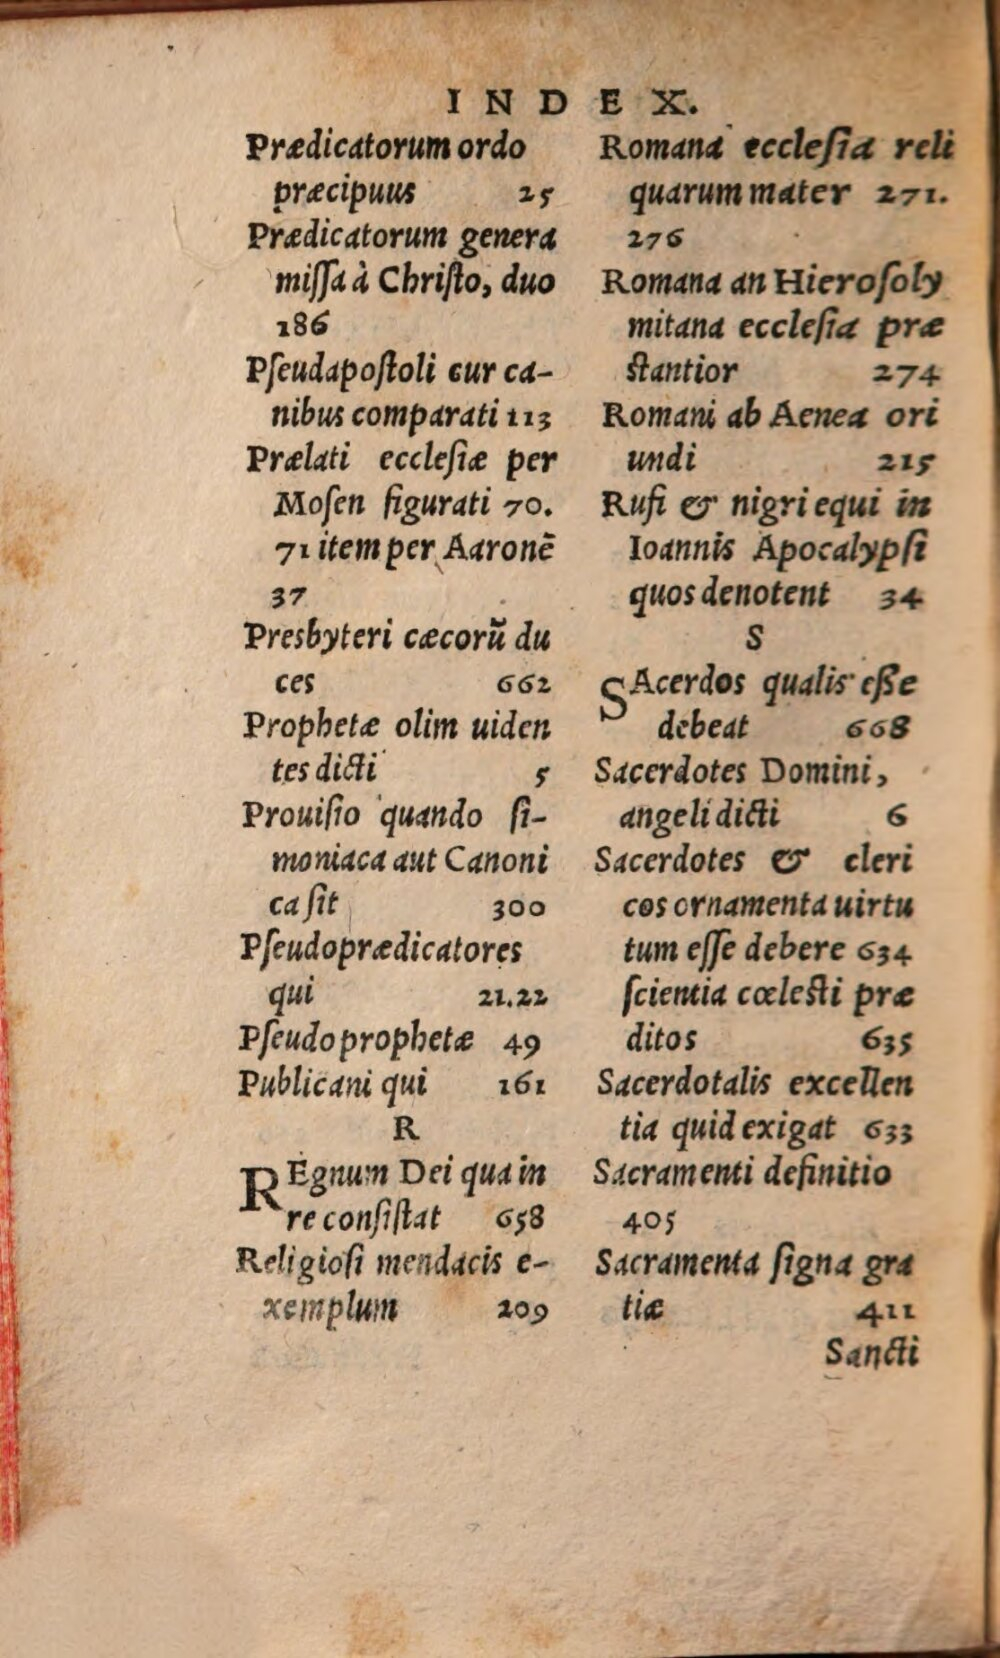 INDEX.
Prædicatorum ordo
præcipuus 25
Prædicatorum genera
miſſa à Chriſto, duo
186
Pſeudapoſtoli cur ca-
nibus comparati 113
Prælati eccleſiæ per
Moſen figurati 70.
71 item per Aaronē
37
Presbyteri cæcorũ du
ces 662
Prophetæ olim uiden
tes dicti 5
Prouiſio quando ſi-
moniaca aut Canoni
ca ſit 300
Pſeudoprædicatores
qui 21.22
Pſeudoprophetæ 49
Publicani qui 161
R
REgnum Dei qua in
re conſiſtat 658
Religioſi mendacis e-
xemplum 209
Romana eccleſia reli
quarum mater 271.
276
Romana an Hieroſoly
mitana eccleſia præ
ſtantior 274
Romani ab Aenea ori
undi 215
Rufi & nigri equi in
Ioannis Apocalypſi
quos denotent 34
S
SAcerdos qualis eſſe
debeat 668
Sacerdotes Domini,
angeli dicti 6
Sacerdotes & cleri
cos ornamenta uirtu
tum eſſe debere 634
ſcientia cœleſti præ
ditos 635
Sacerdotalis excellen
tia quid exigat 633
Sacramenti definitio
405
Sacramenta ſigna gra
tiæ 411
Sancti